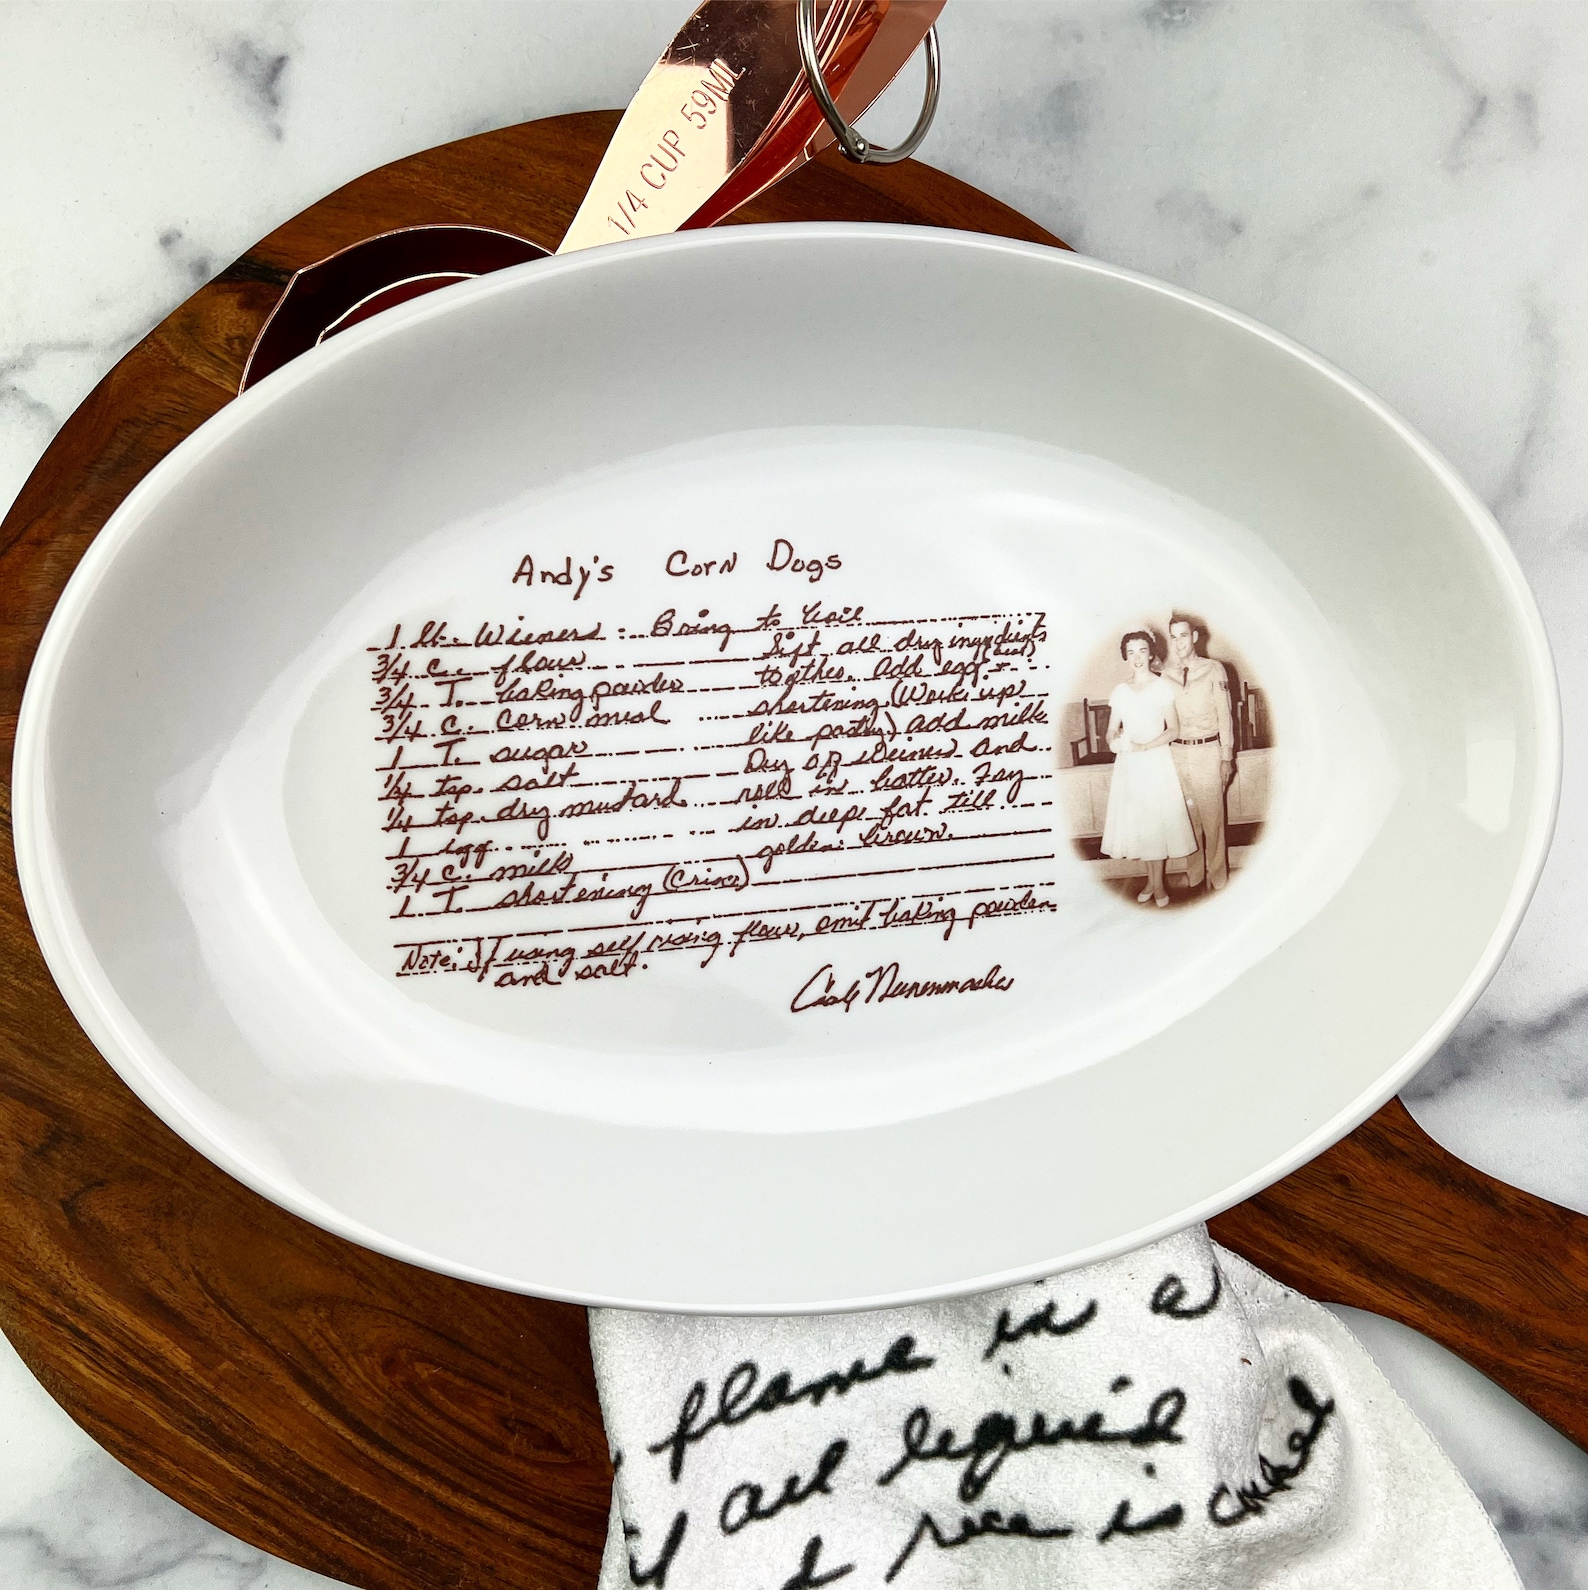 1/4 CUP 59ML
Andy's Corn Dogs
1 lb. Wieners : Bring to boil
3/4 c. flour Sift all dry ingredients
3/4 T. baking powder together. Add egg +
3/4 c. corn meal shortening (Work up
1 T. sugar like pastry) add milk
1/4 tsp. salt Dry off Weiners and
1/4 tsp. dry mustard roll in batter. Fry
1 egg in deep fat till
3/4 c. milk golden brown.
1 T. shortening (Crisco)
Note: If using self rising flour, omit baking powder
and salt.
Nunenmacher
flame in a
all liquid
rice is cooked